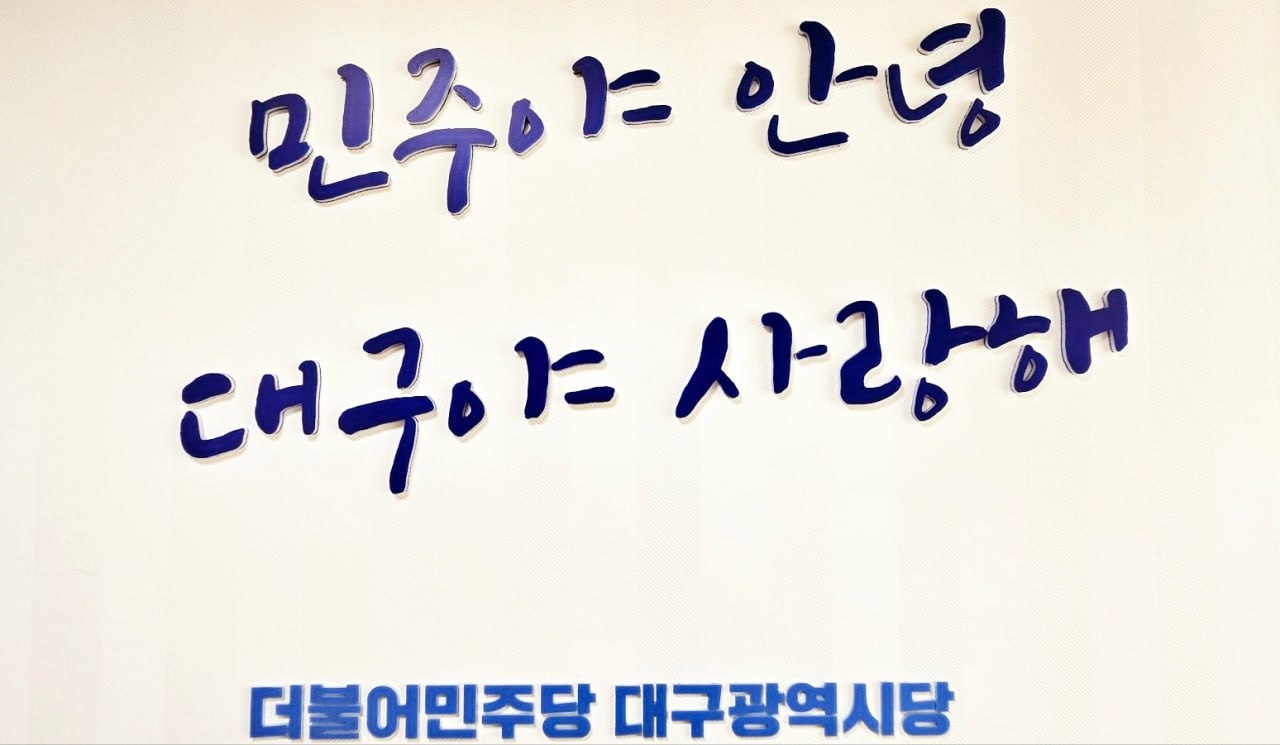 민주야 안녕
대구야 사랑해
더불어민주당 대구광역시당